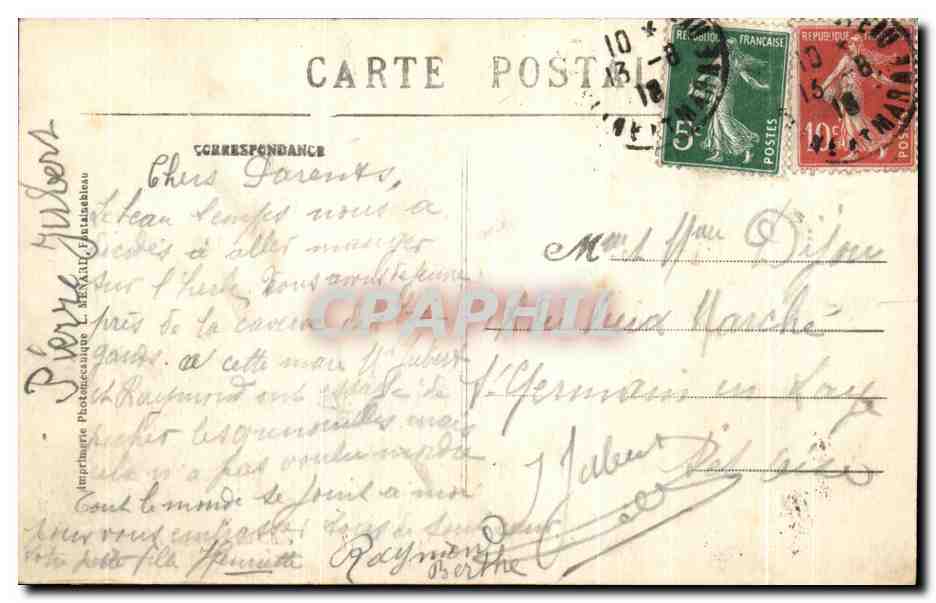 CARTE POSTALE
CORRESPONDANCE
Chers Parents,
Le beau temps nous a
décidés à aller manger
sur l'herbe. Nous avons déjeuné
près de la caverne des Bri-
gands. A cette mare Mr Jubert
et Raymond ont essayé de
pêcher les grenouilles mais
cela n'a pas voulu mordre
Tout le monde se joint à moi
pour vous embrasser tous de
votre petite fille Henriette
Raymond
Berthe
J Jubert
Pierre Jubert
Imprimerie Photomécanique L. MENARD, Fontainebleau
Mr et Mme Dijon
Vieux Marché
St Germain en Laye
Set Oise
REPUBLIQUE FRANÇAISE
5c
POSTES
REPUBLIQUE
10c
POSTES
10 *
13 -8
18
10
13 -8
18
CPARPHIL